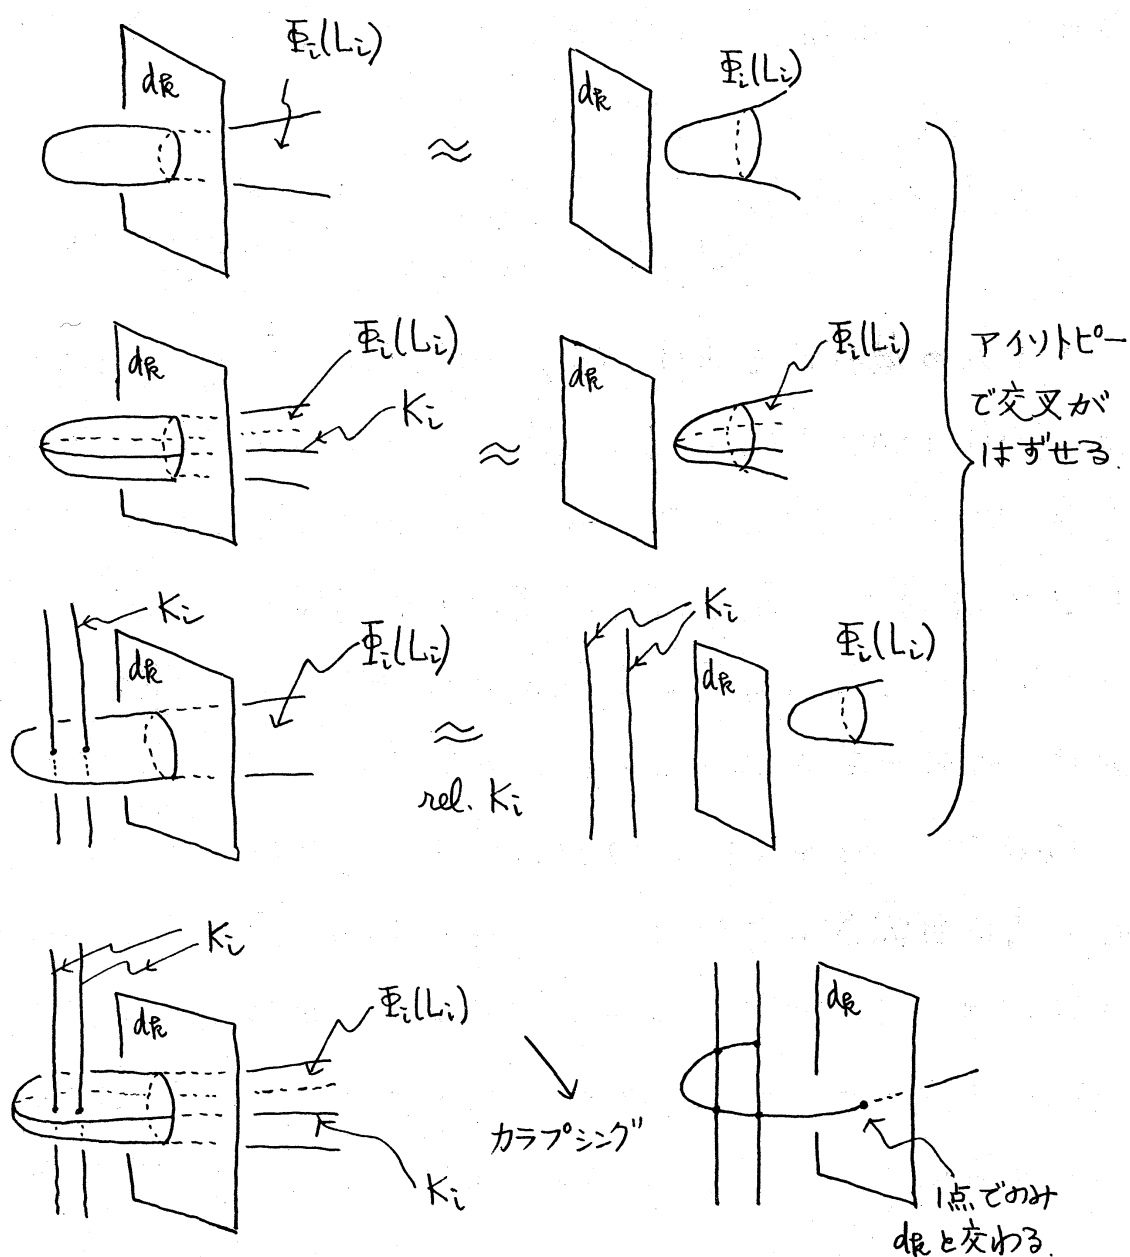 Φᵢ(Lᵢ)
dk
≈
dk
Φᵢ(Lᵢ)
dk
Φᵢ(Lᵢ)
Kᵢ
≈
dk
Φᵢ(Lᵢ)
アイソトピー
で交叉が
はずせる.
Kᵢ
dk
Φᵢ(Lᵢ)
≈
rel. Kᵢ
Kᵢ
dk
Φᵢ(Lᵢ)
Kᵢ
dk
Φᵢ(Lᵢ)
Kᵢ
カラプシング
dk
1点でのみ
dkと交わる.